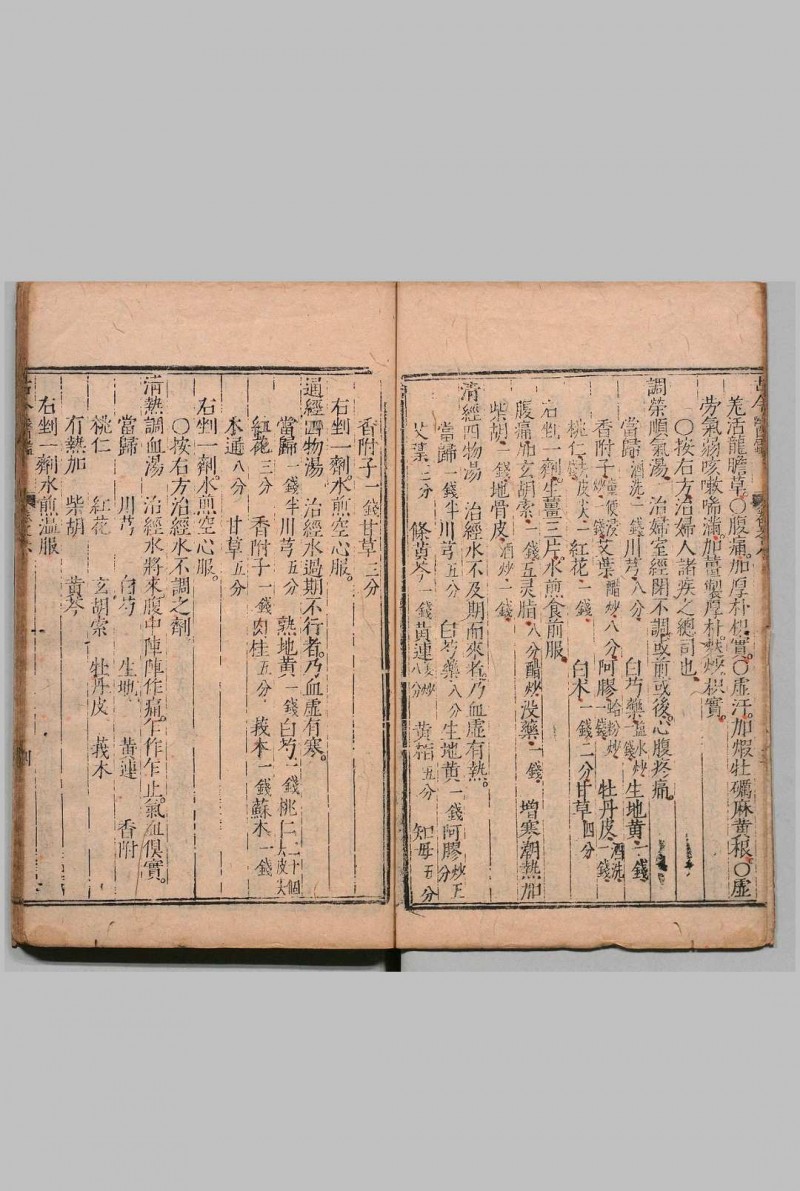 羌活龍膽草〇腹痛加厚朴枳實〇虛汗加煆牡礪麻黃根〇虛
勞氣弱咳嗽喘滿加薑製厚朴麩炒枳實
〇按右方治婦人諸疾之總司也
調榮順氣湯 治婦室經閉不調或前或後心腹疼痛
當歸酒洗一錢 川芎八分 白芍藥鹽水炒一錢 生地黃一錢
香附子童便浸一錢 艾葉醋炒八分 阿膠蛤粉炒一錢 牡丹皮酒洗一錢
桃仁去皮尖 紅花一錢 白朮一錢二分 甘草四分
右剉一劑生薑三片水煎食前服
腹痛加玄胡索一錢五靈脂八分醋炒没藥一錢 增寒潮熱加
柴胡一錢地骨皮酒炒一錢
清經四物湯 治經水不及期而來者乃血虛有熱
當歸一錢半 川芎五分 白芍藥八分 生地黃一錢 阿膠炒五分
艾葉三分 條黃芩一錢 黃連薑炒八分 黃栢五分 知母五分
香附子一錢 甘草三分
右剉一劑水煎空心服
通經四物湯 治經水過期不行者乃血虛有寒
當歸一錢半 川芎五分 熟地黃一錢 白芍一錢 桃仁二十個去皮尖
紅花三分 香附子一錢 肉桂五分 莪朮一錢 蘇木一錢
木通八分 甘草五分
右剉一劑水煎空心服
〇按右方治經水不調之劑
清熱調血湯 治經水將來腹中陣陣作痛乍作乍止氣血俱實
當歸 川芎 白芍 生地 黃連 香附
桃仁 紅花 玄胡索 牡丹皮 莪朮
有熱加 柴胡 黃芩
右剉一劑水煎溫服